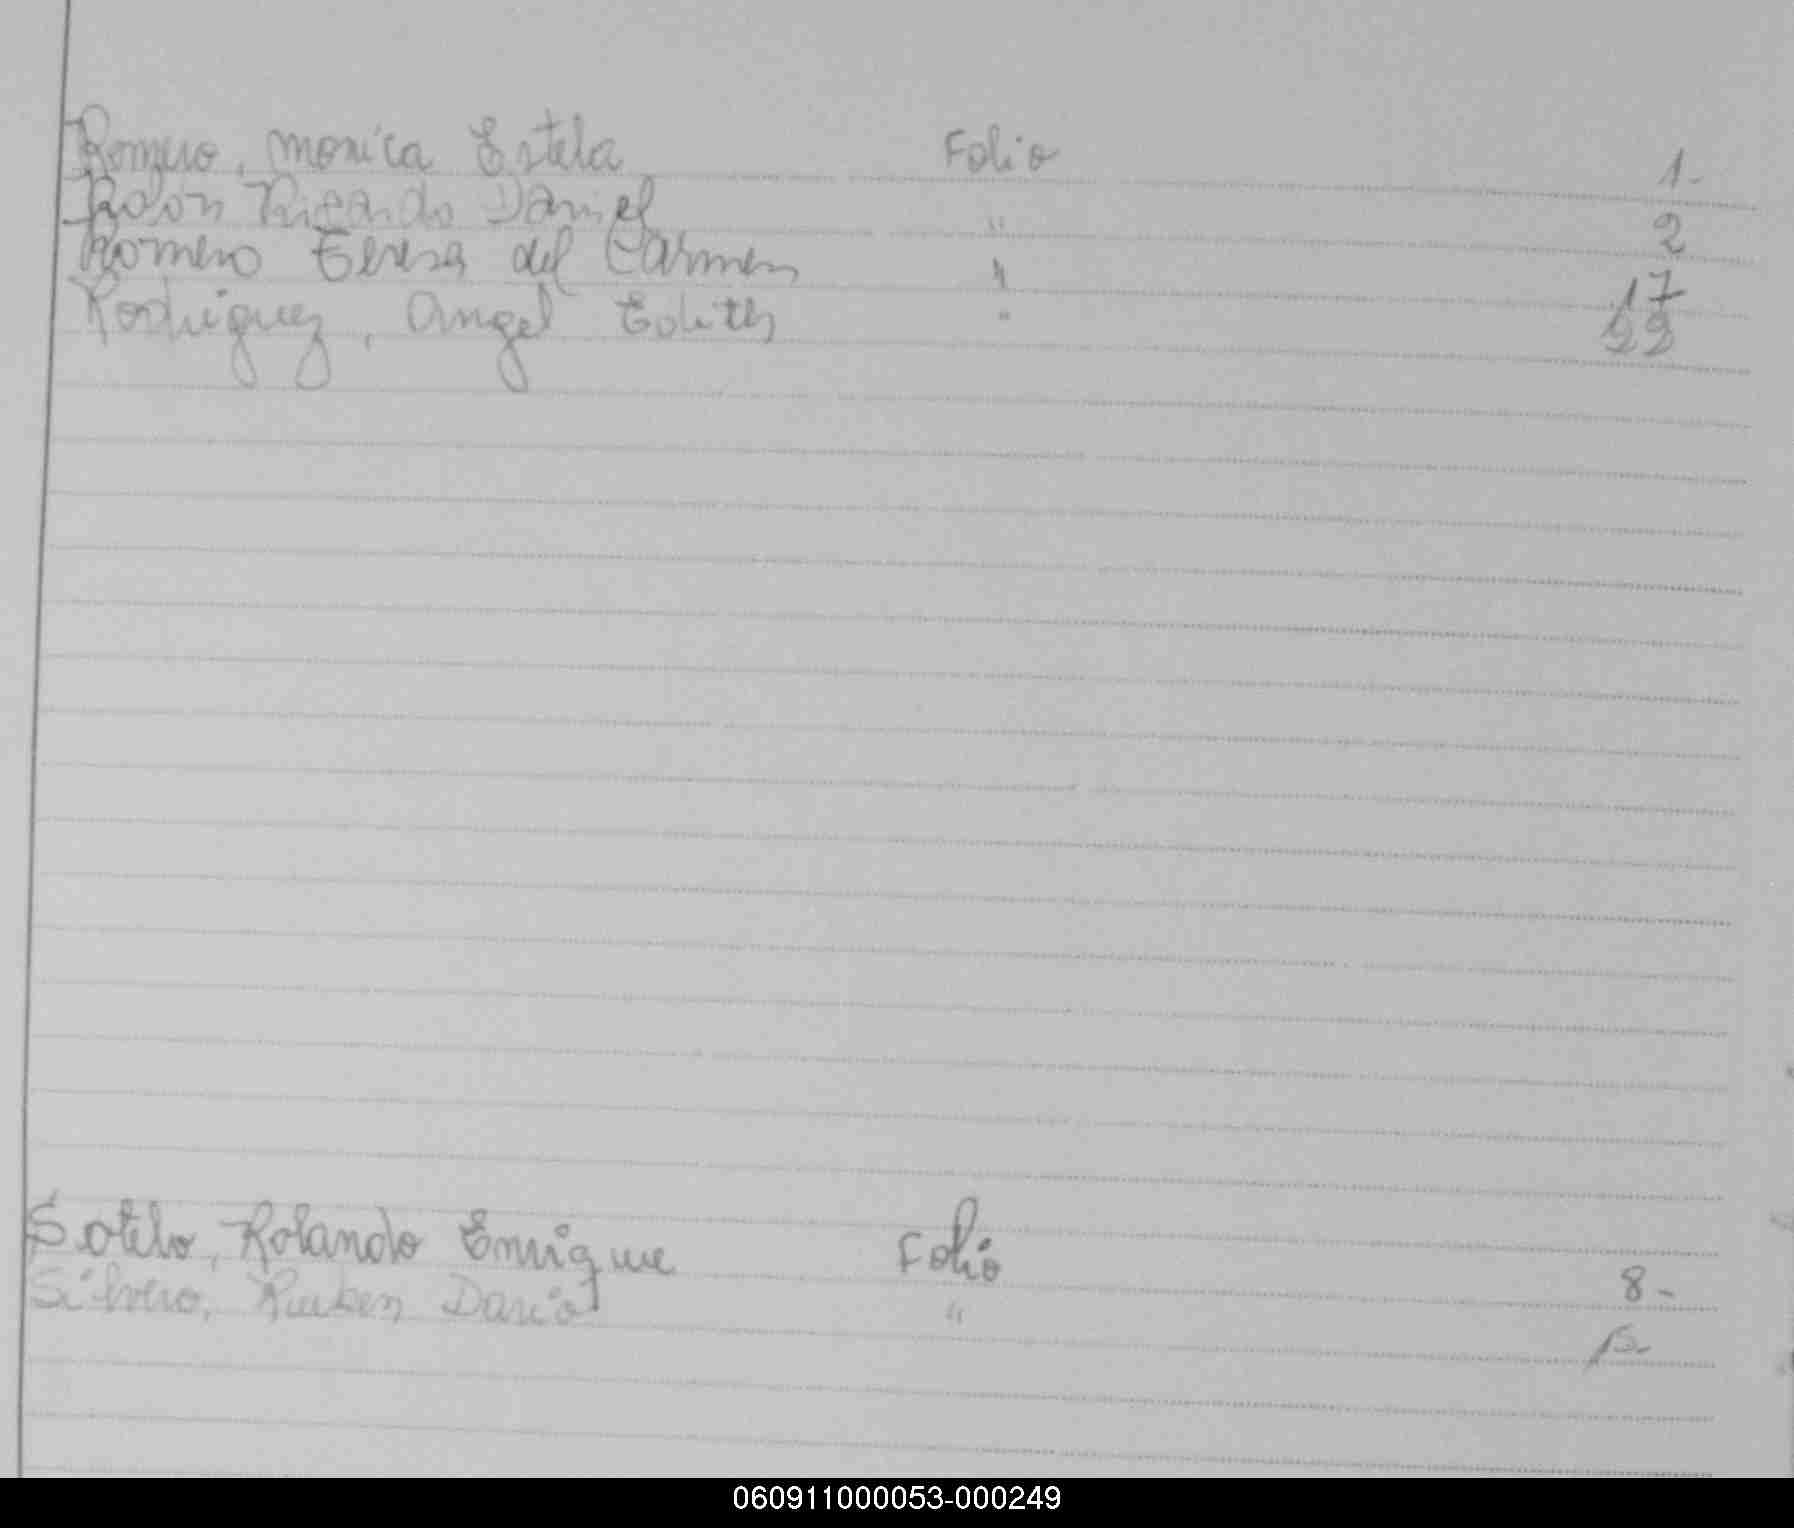 Romero, Monica Estela Folio 1-
Rolon Ricardo Daniel " 2
Romero Teresa del Carmen " 17
Rodriguez, Angel Edith " 22
Sotelo, Rolando Enrique Folio 8-
Silvero, Ruben Dario " 15-
060911000053-000249